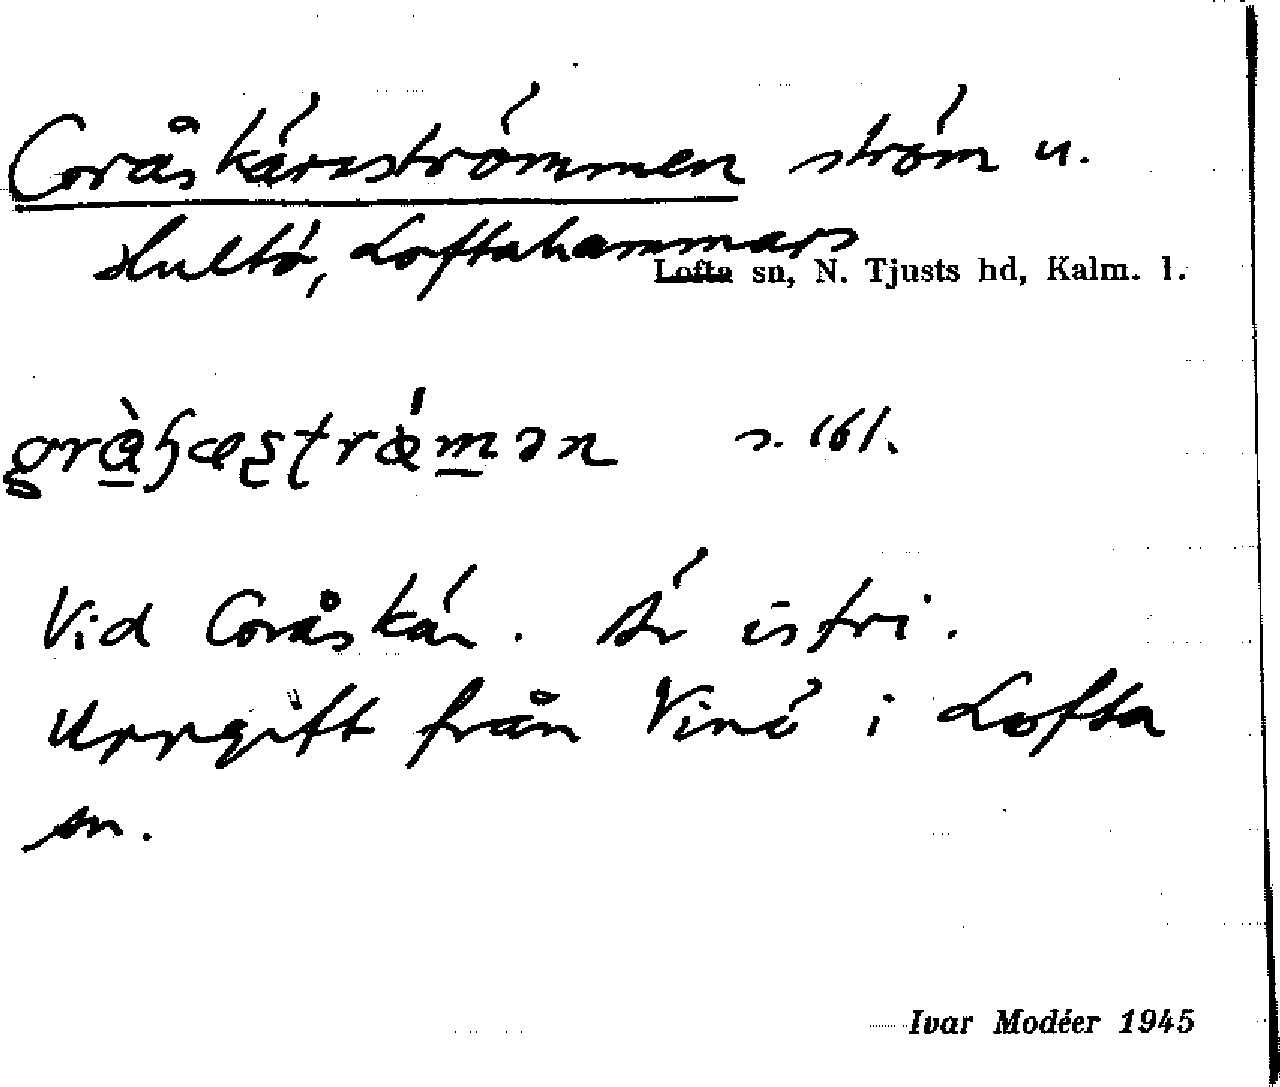 Gråskärsströmmen ström u.
Hultö, Loftahammars
Lofta sn, N. Tjusts hd, Kalm. l.
s. 161.
Vid Gråskär. Är isfri.
Uppgift från Vinö i Lofta
sn.
Ivar Modéer 1945